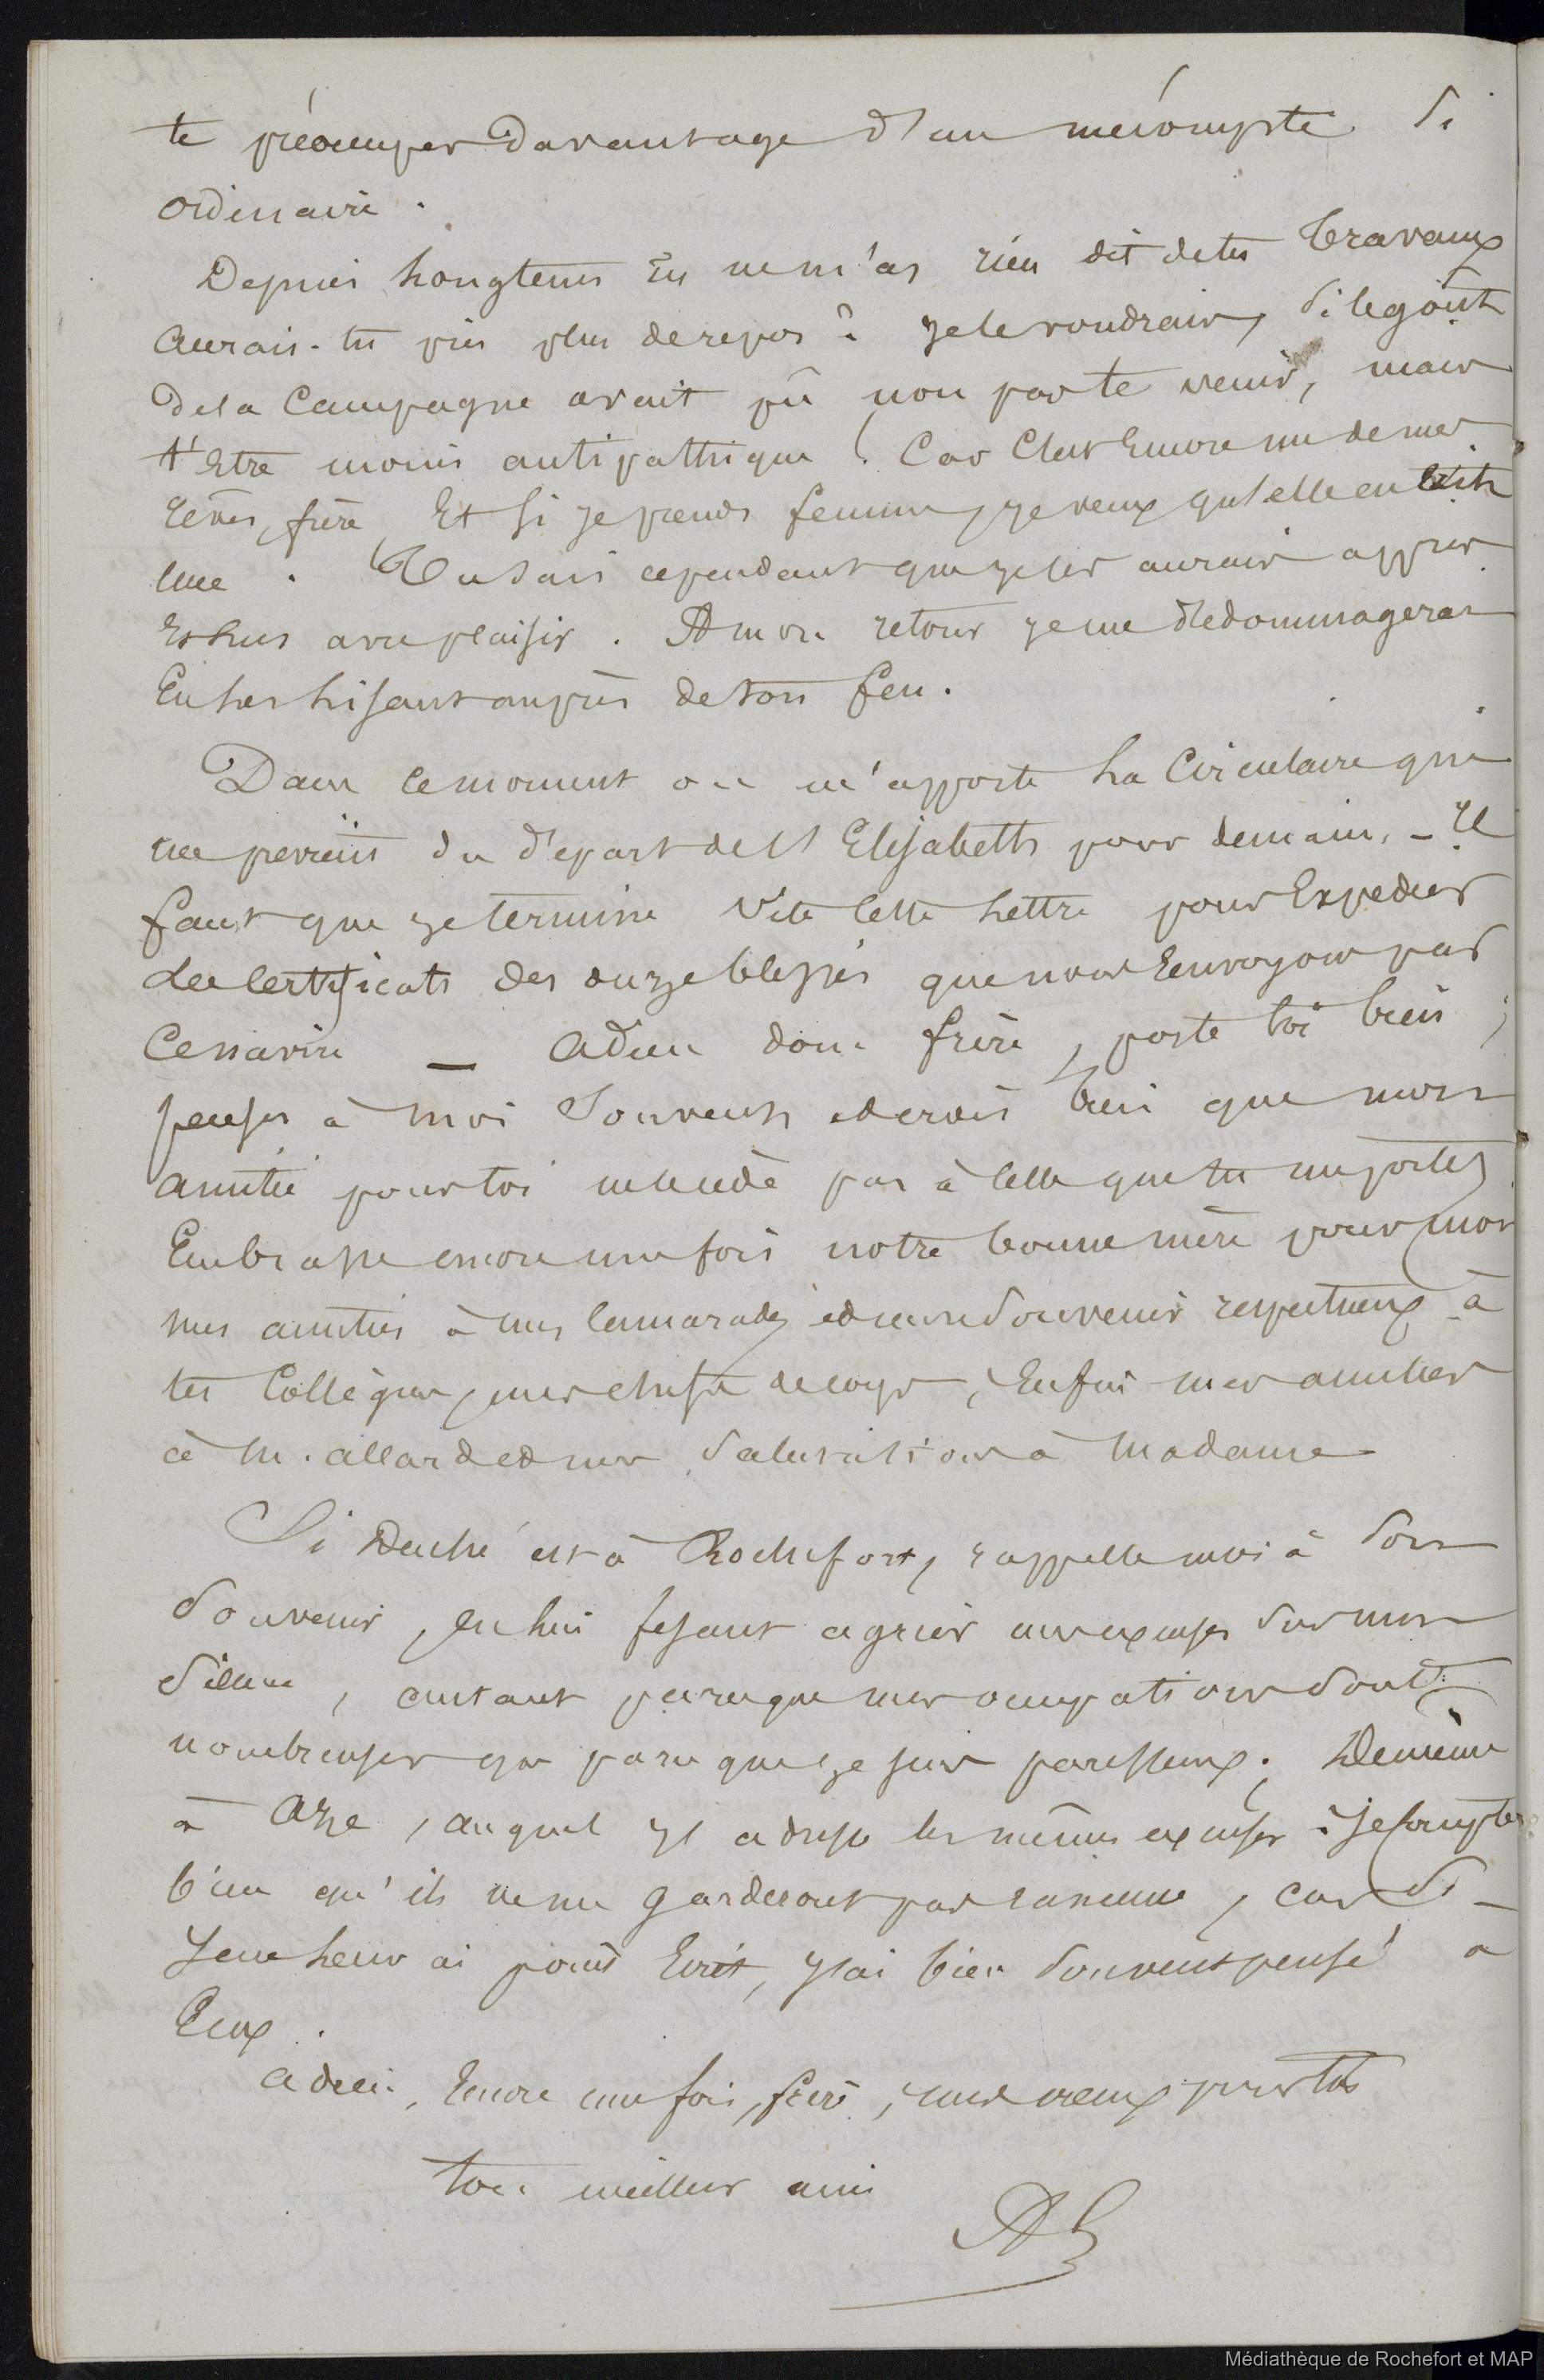 te préocuper Davantage d'un mécompte Si
ordinaire.
Depuis Longtems tu ne m'as rien dit de tes Travaux
Aurais-tu pris plus de repos ? je le voudrais, Si le goût
de la Campagne avait pû non pas te venir, mais
t'Etre moins antipathique ! Car C'est Encore un de mes
rêves, frère Et Si je prends femme, je veux qu'elle en ait
une. Tu sais cependant que je les aurais appris
Et lus avec plaisir. A mon retour je me dédommagerai
En les Lisant auprès de ton feu.
Dans ce moment on m'apporte La Circulaire qui
me prévient du départ de l'Elisabeth pour demain. - Il
faut que je termine Vite Cette Lettre pour Expedier
Les Certificats des onze blessés que nous Envoyons par
Ce navire — Adieu donc frère, porte toi bien ;
penses à moi Souvent et crois bien que mon
amitié pour toi ne le cède pas à Celle que tu me portes
Embrasse encore une fois notre bonne mère pour moi
mes amitiés à mes Camarades et mon Souvenir respectueux à
tes Collègues, mes chefs de corps, Enfin mes amitiés
à M. allard et mes Salutations à Madame
Si Duché est à Rochefort, rappelle moi à Son
Souvenir, en lui fesant agréer mes excuses Sur mon
Silence, autant parceque mes occupations Sont
nombreuses que parce que je suis paresseux. De même
à Aze, auquel j'adresse les mêmes excuses. Je Compte
bien qu'ils ne me garderont pas rancune, car Si
Je ne Leur ai point Ecrit, j'ai bien Souvent pensé à
Eux.
adieu, Encore une fois, frère, mes vœux pour toi
ton meilleur ami